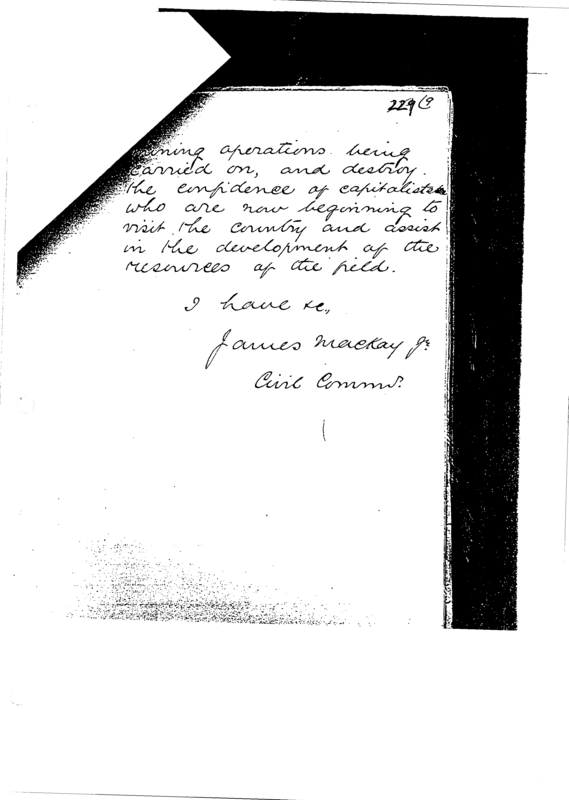 229
mining operations being
carried on, and destroy
the confidence of capitalists
who are now beginning to
visit the country and assist
in the development of the
resources of the field.
I have &c,
James Mackay Jr.
Civil Commr.